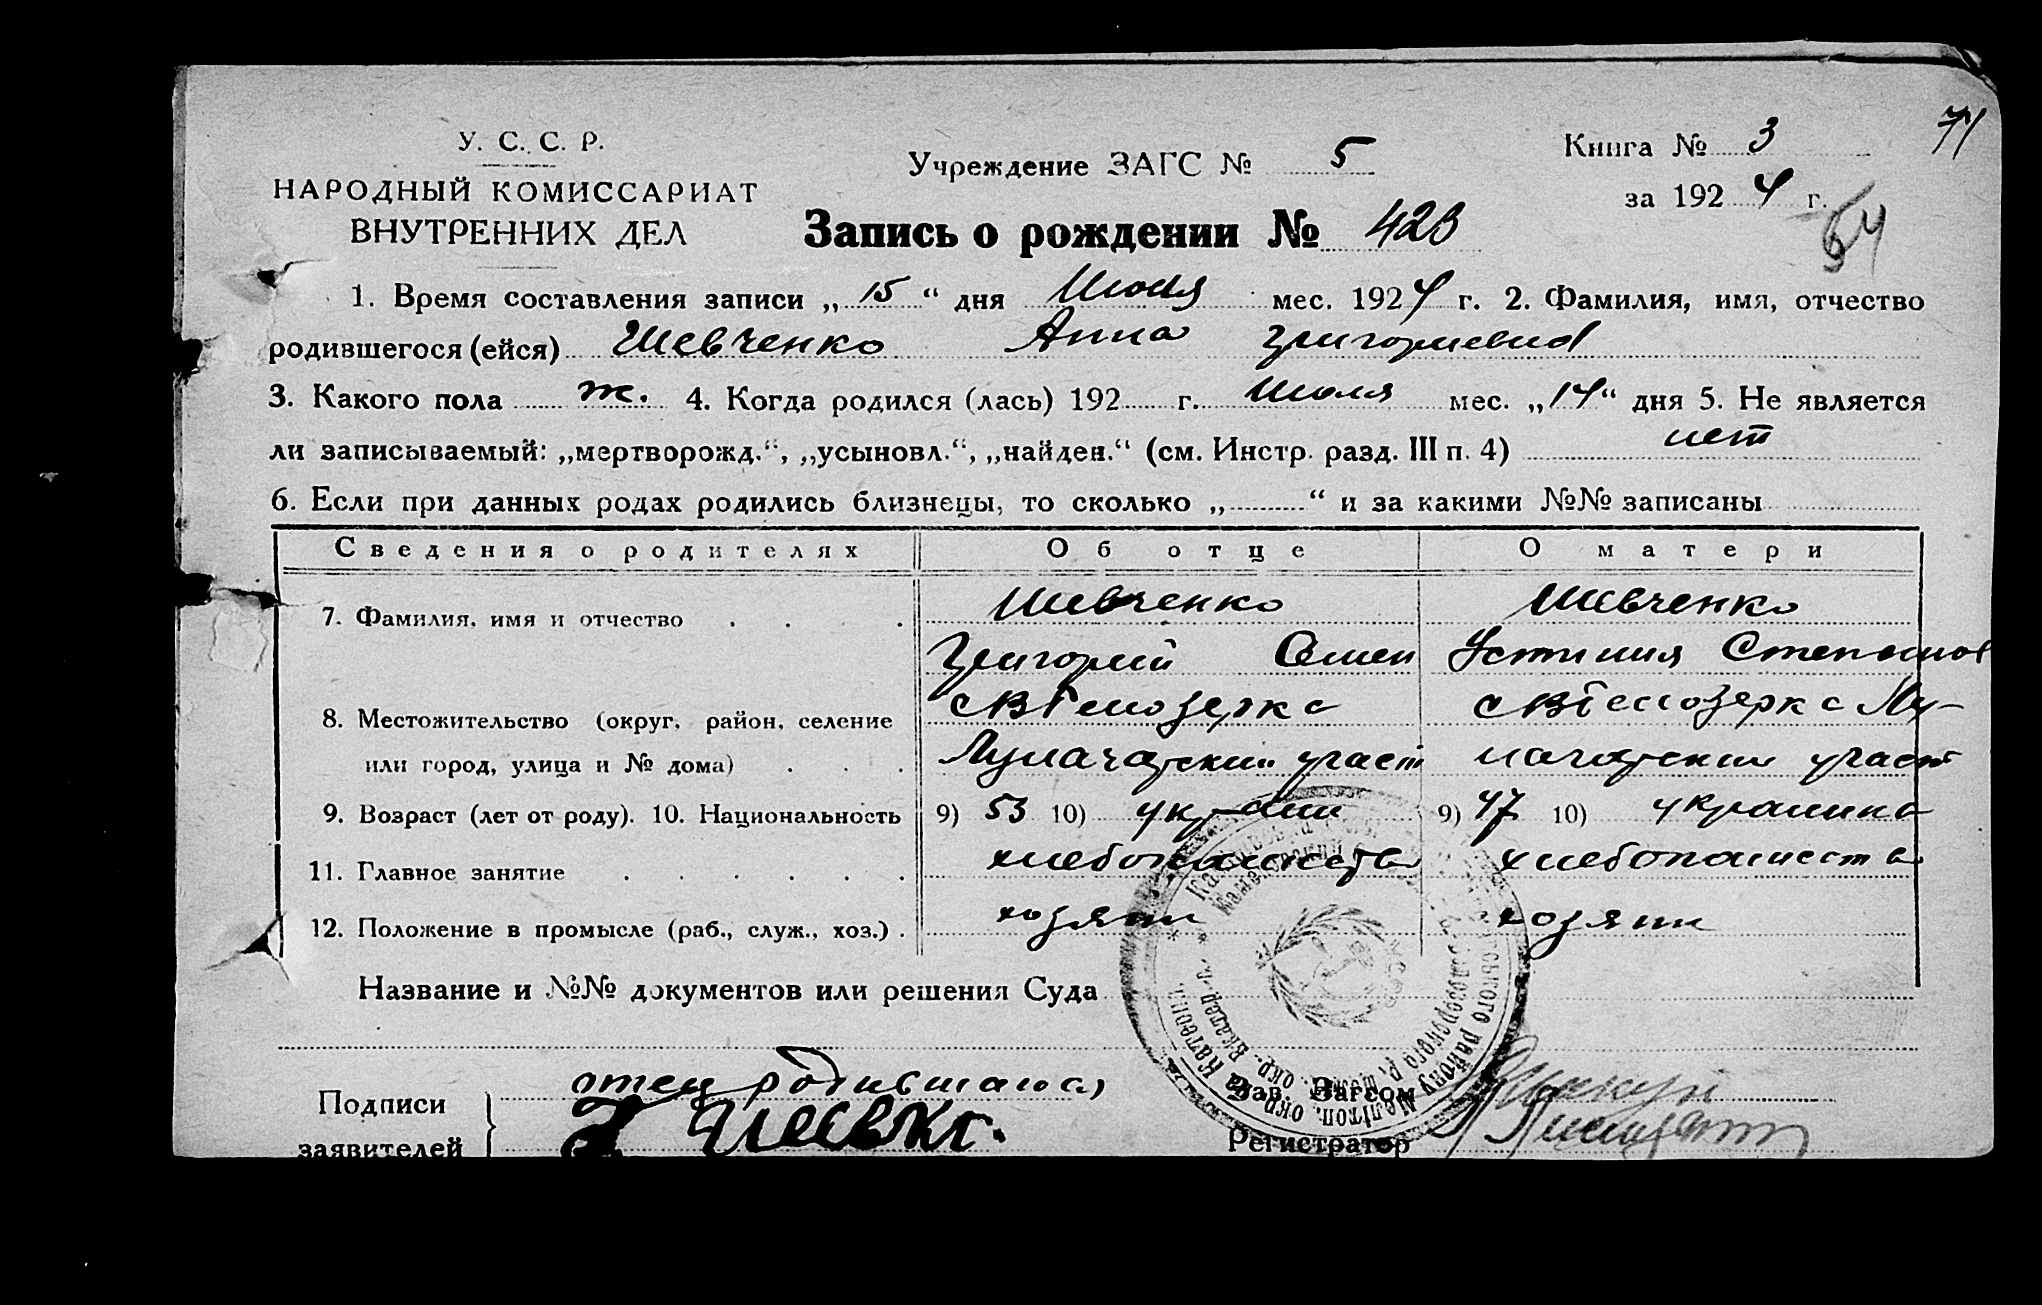 71
У. С. С. Р.
НАРОДНЫЙ КОМИССАРИАТ
ВНУТРЕННИХ ДЕЛ
Учреждение ЗАГС № 5
Книга № 3
за 1924 г.
54
Запись о рождении № 423
1. Время составления записи „15“ дня Июля мес. 1924 г. 2. Фамилия, имя, отчество
родившегося (ейся) Шевченко Анна Григориевна
3. Какого пола ж. 4. Когда родился (лась) 192 г. Июля мес. „14“ дня 5. Не является
ли записываемый: „мертворожд.“, „усыновл.“, „найден.“ (см. Инстр. разд. III п. 4) нет
6. Если при данных родах родились близнецы, то сколько „ “ и за какими №№ записаны
Сведения о родителях Об отце О матери
7. Фамилия, имя и отчество Шевченко Шевченко
Григорий Семен Устиния Степанов
8. Местожительство (округ, район, селение с ВБелозерка с ВБелозерка
или город, улица и № дома) участ участ
9. Возраст (лет от роду). 10. Национальность 9) 53 10) украин 9) 47 10) украинка
11. Главное занятие хлебопашеств хлебопашеств
12. Положение в промысле (раб., служ., хоз.) хозяин хозяин
Название и №№ документов или решения Суда
Подписи отец родившагося Зав. Загсом
заявителей Г. Регистратор